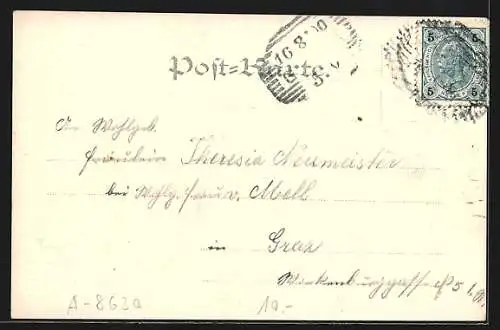 Post-Karte
16 8 00
5 5
5 5
An Wohlgeb.
Fräulein Theresia Neumeister
bei Wohlg. Frau v. Mell
in Graz
Wickenburggasse № 5 I.
A-8620
10.-